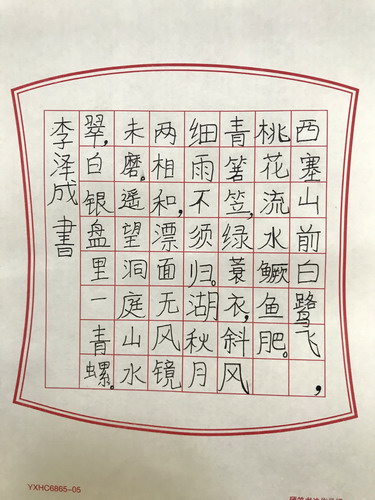 西塞山前白鹭飞，
桃花流水鳜鱼肥。
青箬笠，绿蓑衣，斜风
细雨不须归。湖秋月
两相和，漂面无风镜
未磨。遥望洞庭山水
翠，白银盘里一青螺。
李泽成書
YXHC6865-05